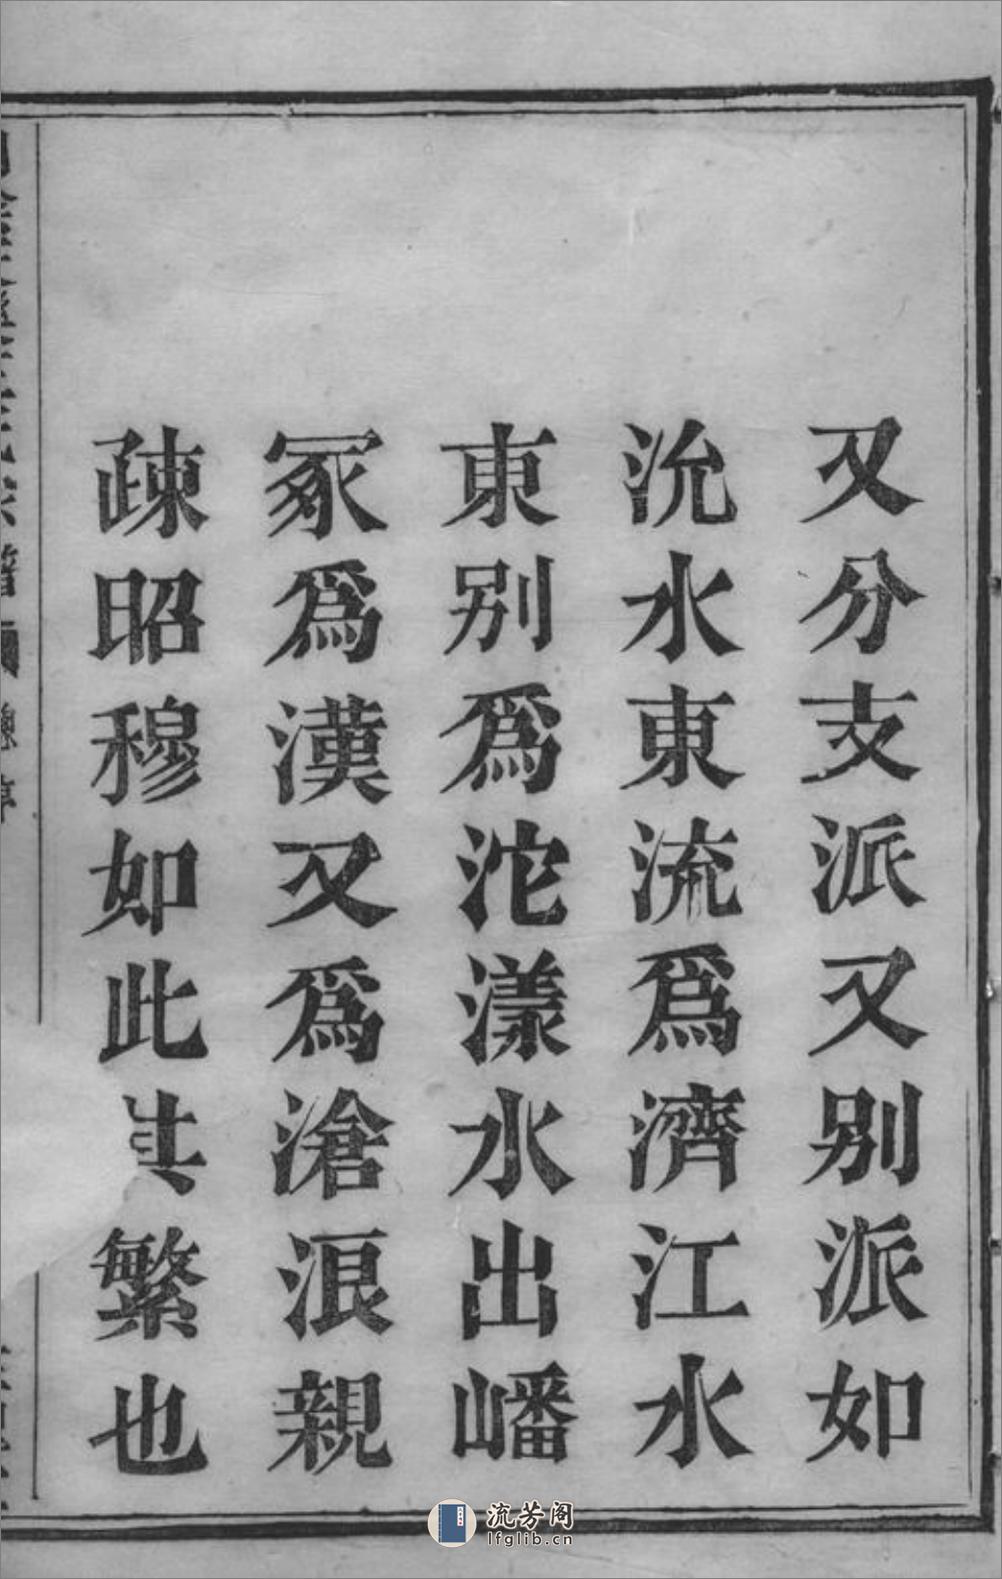 又分支派又别派如
沇水東流爲濟江水
東别爲沱漾水出嶓
冢爲漢又爲滄浪親
疎昭穆如此其繁也
流芳阁
lfglib.cn